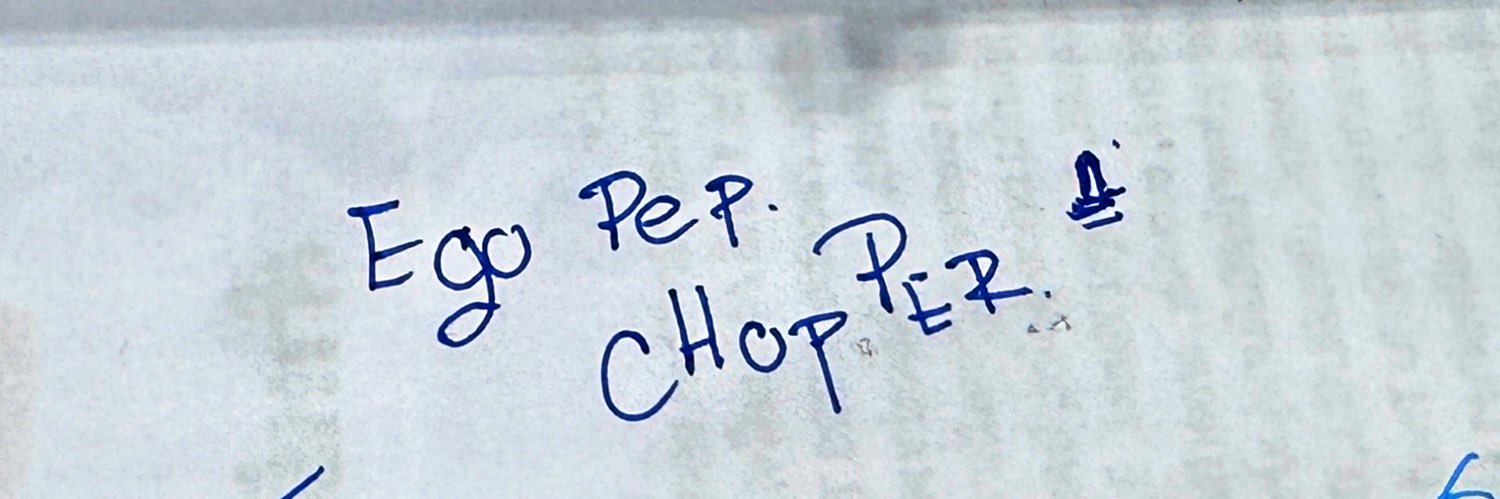 Ego Pep.
CHOPPER.